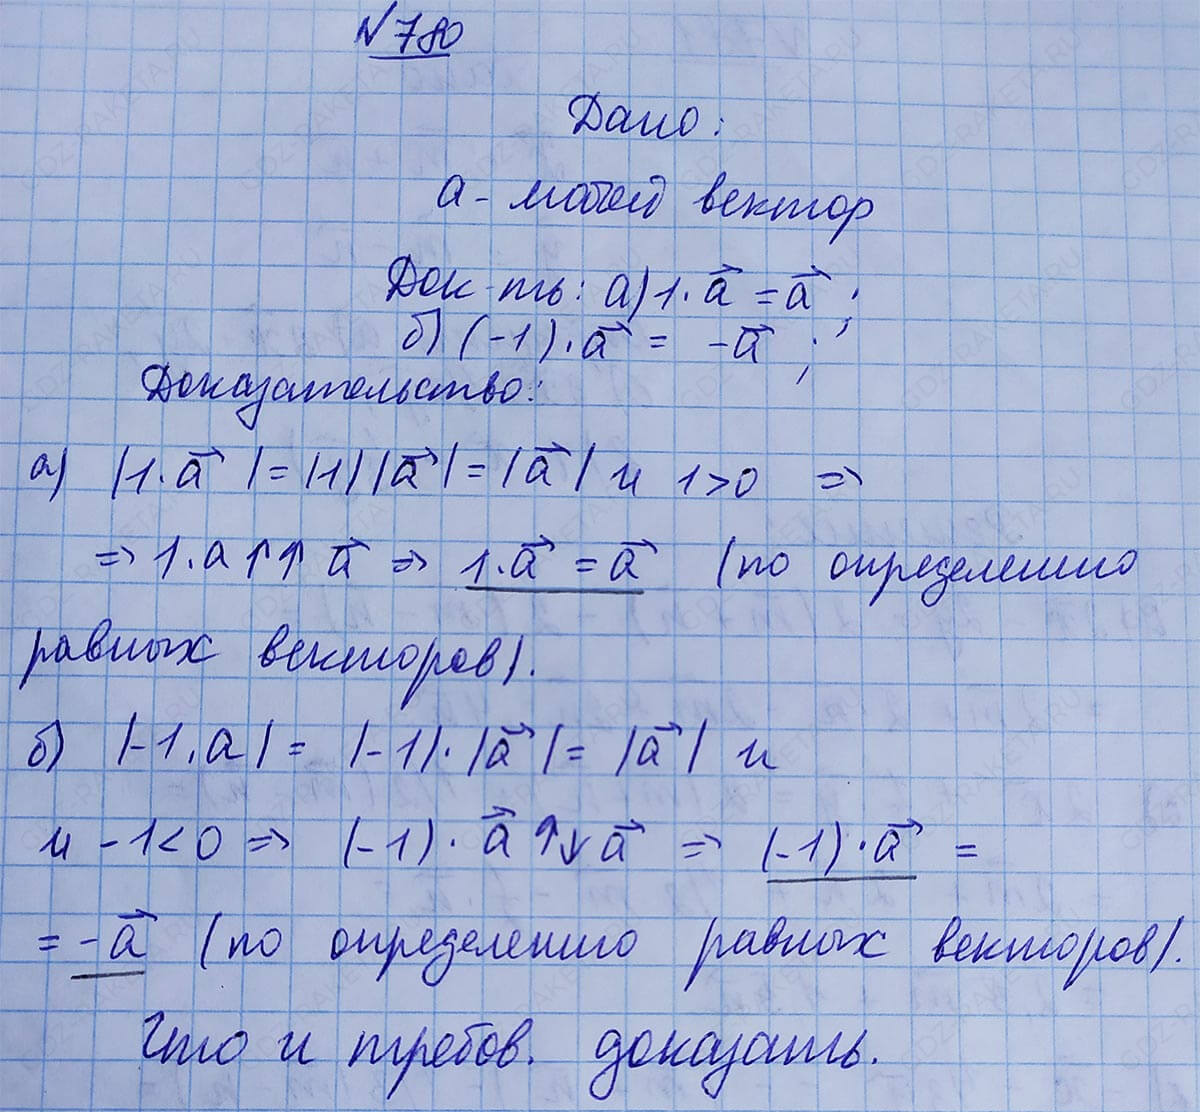 №780
Дано:
a - любой вектор
Док-ть: а) 1·a⃗ = a⃗ ;
б) (-1)·a⃗ = -a⃗ ;
Доказательство:
а) |1·a⃗| = |1||a⃗| = |a⃗| и 1>0 ⇒
⇒ 1·a ↑↑ a⃗ ⇒ 1·a⃗ = a⃗ (по определению
равных векторов).
б) |-1·a| = |-1|·|a⃗| = |a⃗| и
и -1<0 ⇒ (-1)·a⃗ ↑↓ a⃗ ⇒ (-1)·a⃗ =
= -a⃗ (по определению равных векторов).
Что и требов. доказать.